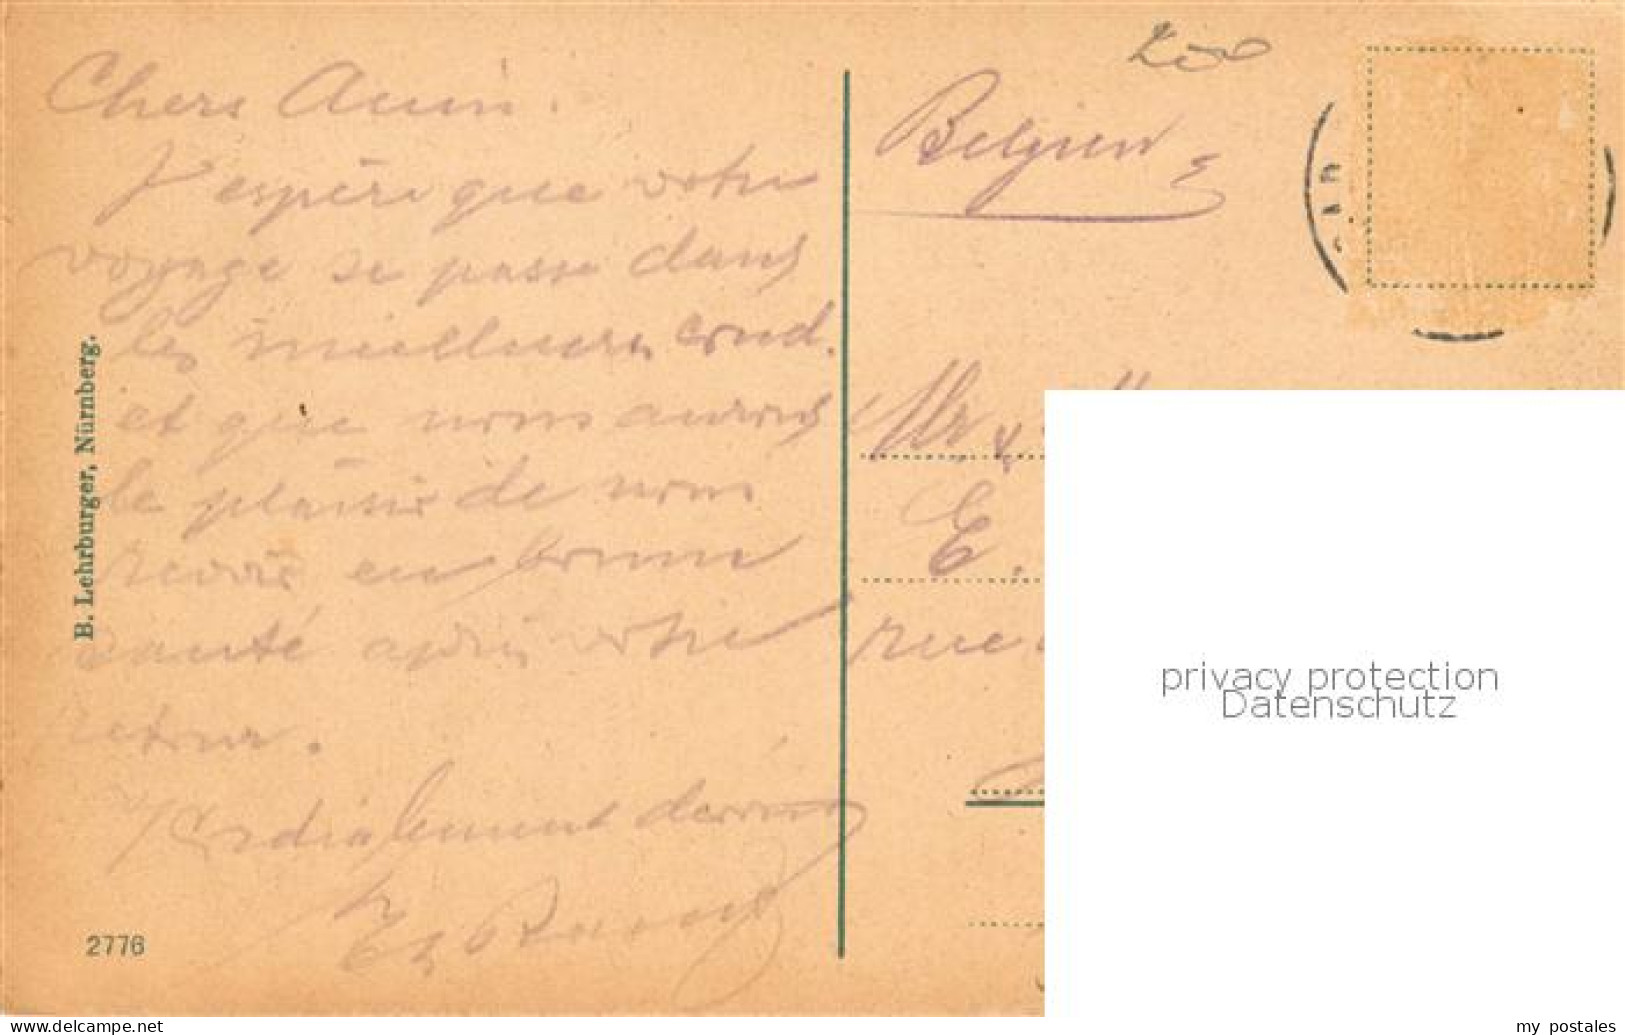 Chers Amis.
J'espère que votre
voyage se passe dans
les meilleures cond.
et que nous aurons
le plaisir de nous
revoir en bonne
santé après votre
retour.
Cordialement
B. Lehrburger, Nürnberg.
2776
Belgien
Mr &
E.
rue
privacy protection
Datenschutz
www.delcampe.net
my_postales